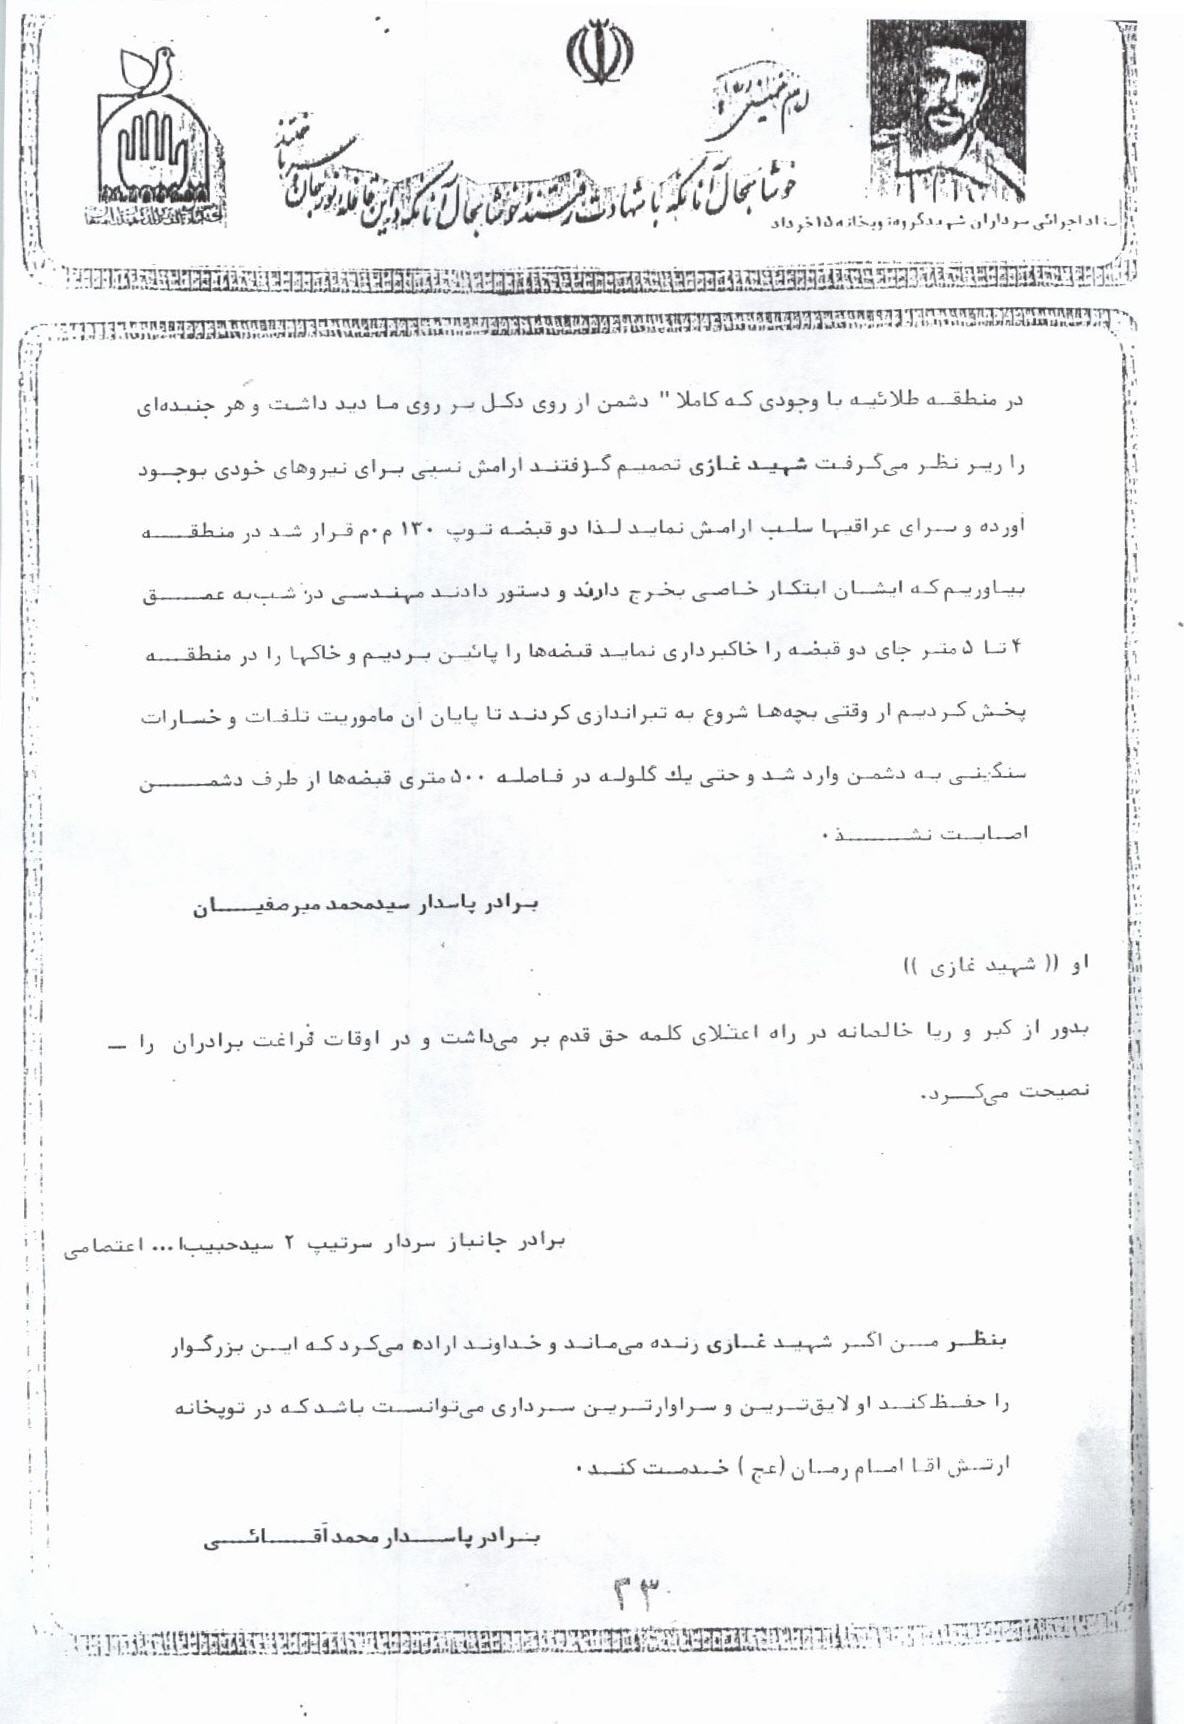 امام خمینی
خوشا بحال آنانکه با شهادت رفتند خوشا بحال آنانکه در این قافله نور جان و سر باختند
ستاد اجرائی سرداران شهید گروه توپخانه ۱۵ خرداد
در منطقه طلائیه با وجودی که کاملا" دشمن از روی دکل بر روی ما دید داشت و هر جنبده‌ای
را زیر نظر می‌گرفت شهید غازی تصمیم گرفتند ارامش نسبی برای نیروهای خودی بوجود
اورده و برای عراقیها سلب ارامش نماید لذا دو قبضه توپ ۱۳۰ م.م قرار شد در منطقه
بیاوریم که ایشان ابتکار خاصی بخرج دادند و دستور دادند مهندسی در شب به عمق
۴ تا ۵ متر جای دو قبضه را خاکبرداری نماید قبضه‌ها را پائین بردیم و خاکها را در منطقه
پخش کردیم از وقتی بچه‌ها شروع به تیراندازی کردند تا پایان ان ماموریت تلفات و خسارات
سنگینی به دشمن وارد شد و حتی یك گلوله در فاصله ۵۰۰ متری قبضه‌ها از طرف دشمن
اصابت نشد.
برادر پاسدار سیدمحمد میرصفیان
او (( شهید غازی ))
بدور از کبر و ریا خالصانه در راه اعتلای کلمه حق قدم بر می‌داشت و در اوقات فراغت برادران را _
نصیحت می‌کرد.
برادر جانباز سردار سرتیپ ۲ سیدحبیب‌ا... اعتصامی
بنظر من اگر شهید غازی زنده می‌ماند و خداوند اراده می‌کرد که این بزرگوار
را حفظ کند او لایق‌ترین و سزاوارترین سرداری می‌توانست باشد که در توپخانه
ارتش اقا امام زمان (عج) خدمت کند.
برادر پاسدار محمد آقائی
۲۳